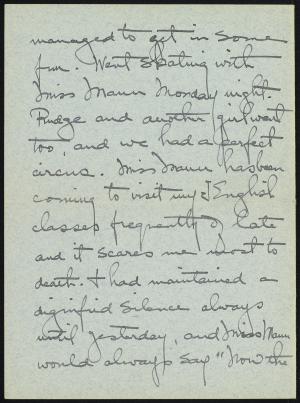 managed to get in some
fun. Went skating with
Miss Mann Monday night.
Pudge and another girl went
too, and we had a perfect
circus. Miss Mann has been
coming to visit my English
classes frequently of late
and it scares me most to
death. I had maintained a
dignified silence always
until yesterday, and Miss Mann
would always say "Now the